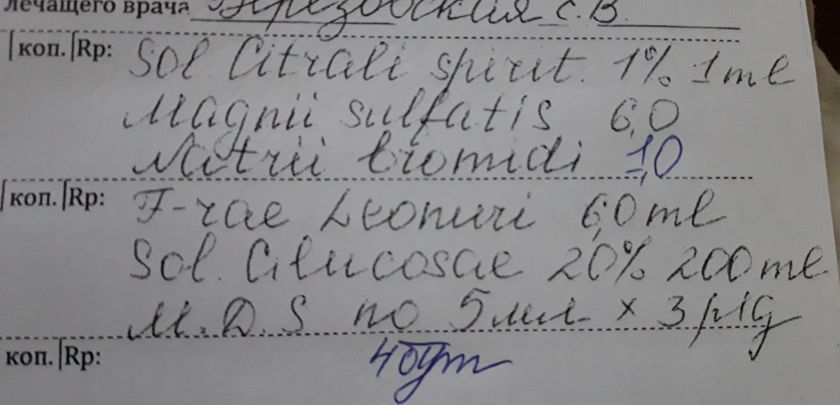 лечащего врача Березовская С.В.
коп. Rp: Sol. Citrali spirit. 1% 1ml
Magnii sulfatis 6,0
Natrii bromidi 1,0
коп. Rp: T-rae Leonuri 6,0 ml
Sol. Glucosae 20% 200 ml
M.D.S по 5 мл x 3 р/д
коп. Rp: 4 бут